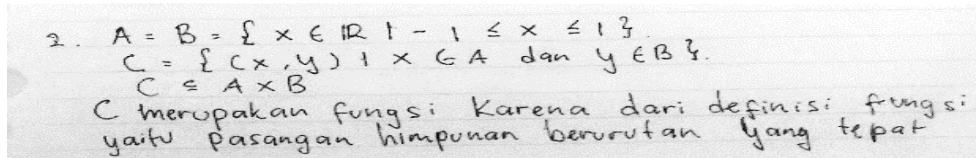 2. A = B = { x ∈ IR | - 1 ≤ x ≤ 1 }.
C = { (x, y) | x ∈ A dan y ∈ B }.
C ⊆ A × B
C merupakan fungsi karena dari definisi fungsi
yaitu pasangan himpunan berurutan yang tepat